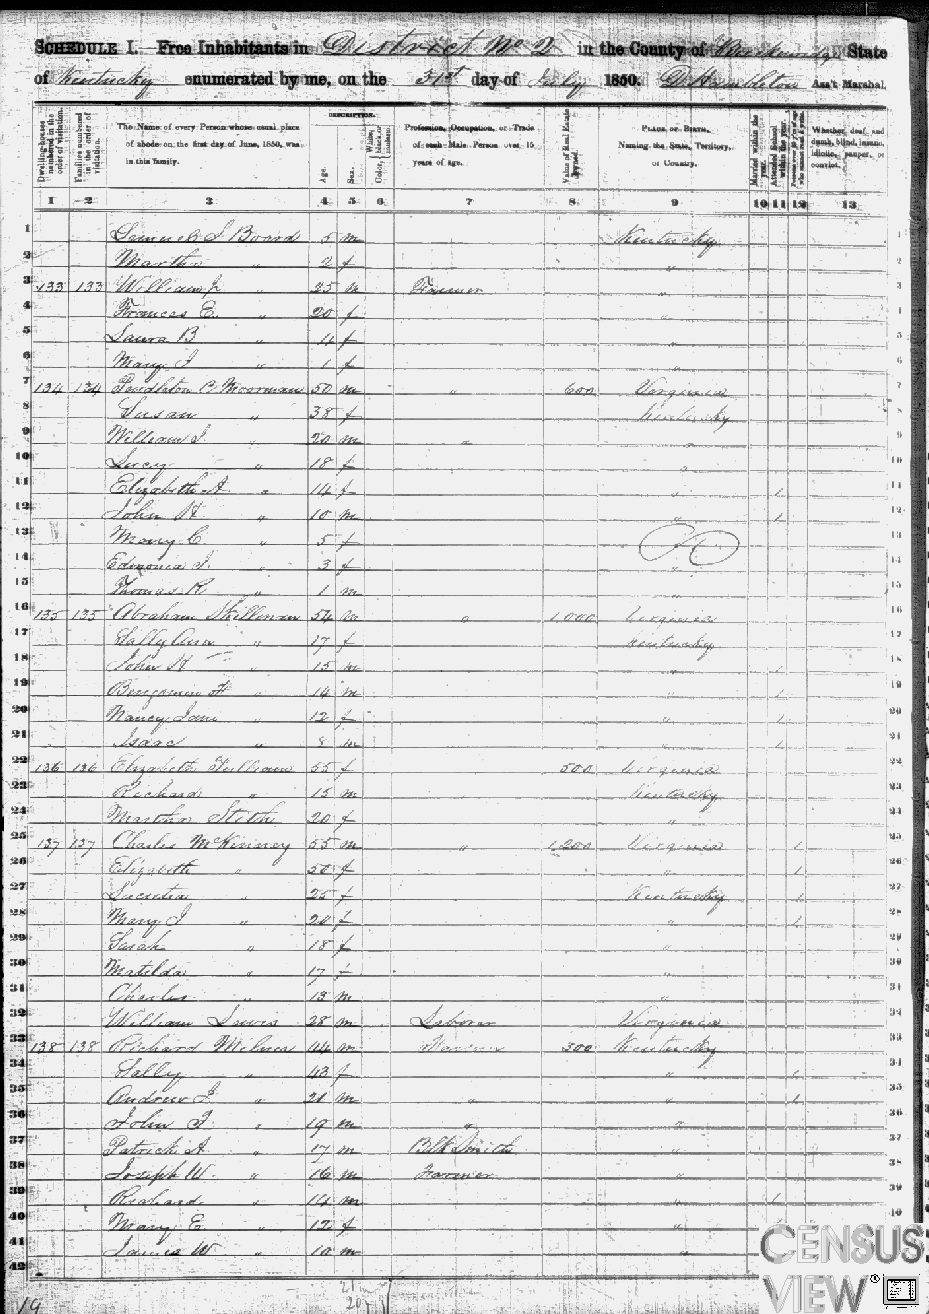 SCHEDULE I. Free Inhabitants in District No 2 in the County of State
of Kentucky enumerated by me, on the 31st day of July 1850. Ass't Marshal.
Dwelling-houses numbered in the order of visitation.
Families numbered in the order of visitation.
The Name of every Person whose usual place of abode on the first day of June, 1850, was in this family.
DESCRIPTION.
Age.
Sex.
Color, White, black, or mulatto.
Profession, Occupation, or Trade of each Male Person over 15 years of age.
Value of Real Estate owned.
PLACE OF BIRTH. Naming the State, Territory, or Country.
Married within the year.
Attended School within the year.
Persons over 20 y'rs of age who cannot read & write.
Whether deaf and dumb, blind, insane, idiotic, pauper, or convict.
1 2 3 4 5 6 7 8 9 10 11 12 13
1 Board 5 m Kentucky 1
2 Martha " 2 f " 2
3 133 133 William " 25 m Farmer " 3
4 Frances E. " 20 f " 4
5 Laura B " 4 f " 5
6 Mary J " 1 f " 6
7 134 134 Pendleton C Moorman 50 m " 600 Virginia 7
8 Susan " 38 f Kentucky 8
9 William J. " 20 m " " 9
10 Lucy " 18 f " 10
11 Elizabeth A " 14 f " 1 11
12 John H " 10 m " 1 12
13 Mary C " 5 f 13
14 J. " 3 f " 14
15 Thomas R " 1 m " 15
16 135 135 Abraham Skillman 54 m " 1,000 Virginia 16
17 Sally Ann " 17 f Kentucky 17
18 John H " 15 m " 1 18
19 Benjamin H " 14 m " 1 19
20 Nancy Jane " 12 f " 1 20
21 Isaac " 8 m " 1 21
22 136 136 Elizabeth 55 f 500 Virginia 22
23 Richard " 15 m Kentucky 23
24 Martha Stith 20 f " 24
25 137 137 Charles McKinney 55 m " 1,200 Virginia 1 25
26 Elizabeth " 50 f " 1 26
27 Lucretia " 25 f Kentucky 1 27
28 Mary J " 20 f " 1 28
29 Sarah " 18 f " 29
30 Matilda " 17 f 30
31 Charles " 13 m " 31
32 William Lewis 28 m Laborer Virginia 32
33 138 138 Richard 44 m 300 Kentucky 33
34 Sally " 43 f " 1 34
35 Andrew J. " 21 m " " 1 35
36 John " 19 m " " 36
37 Patrick A. " 17 m Blk Smith " 37
38 Joseph W. " 16 m Farmer " 38
39 Richard " 14 m " 1 39
40 Mary E. " 12 f " 40
41 James W " 10 m "
42
CENSUS
VIEW
19
20